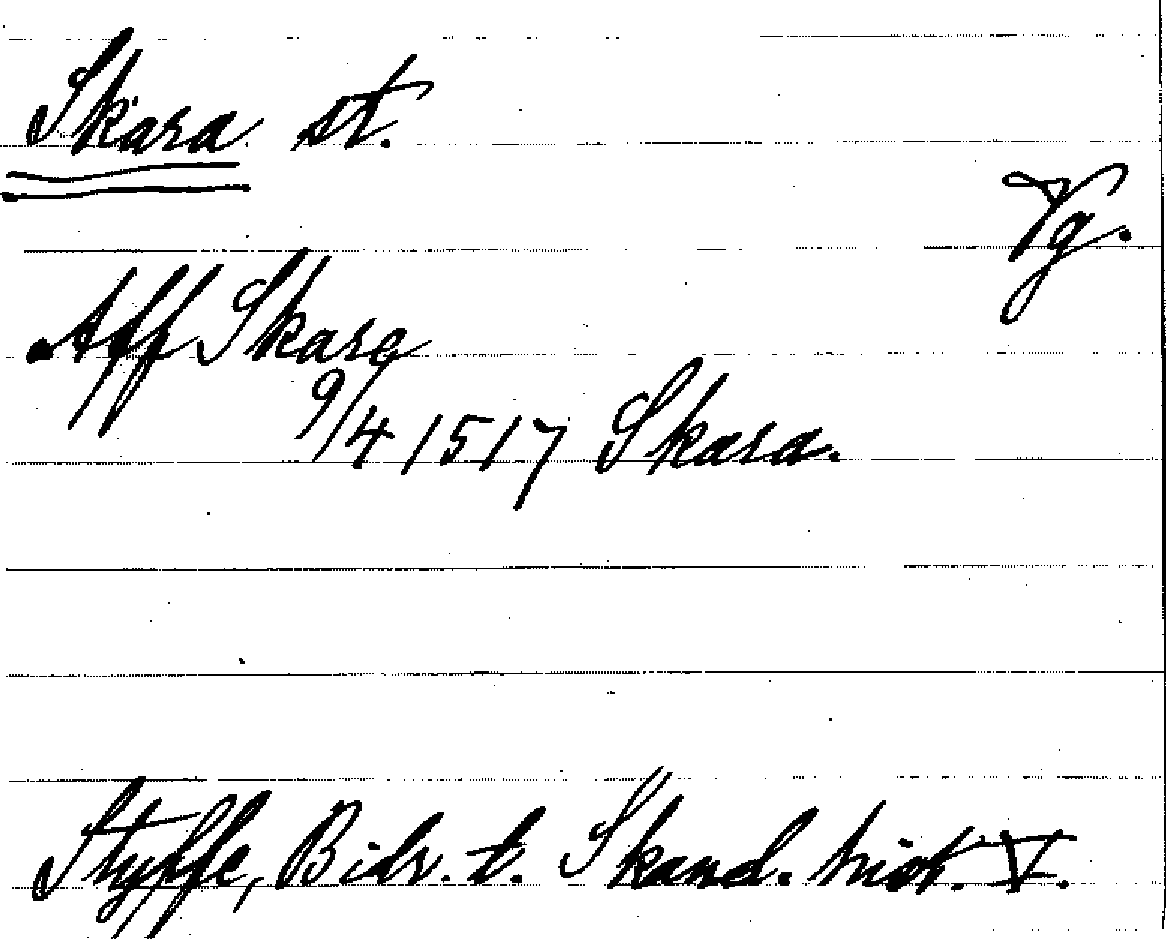 Skara st.
Vg.
Aff Skara
9/4 1517 Skara.
Styffe, Bidr. t. Skand. hist. V.